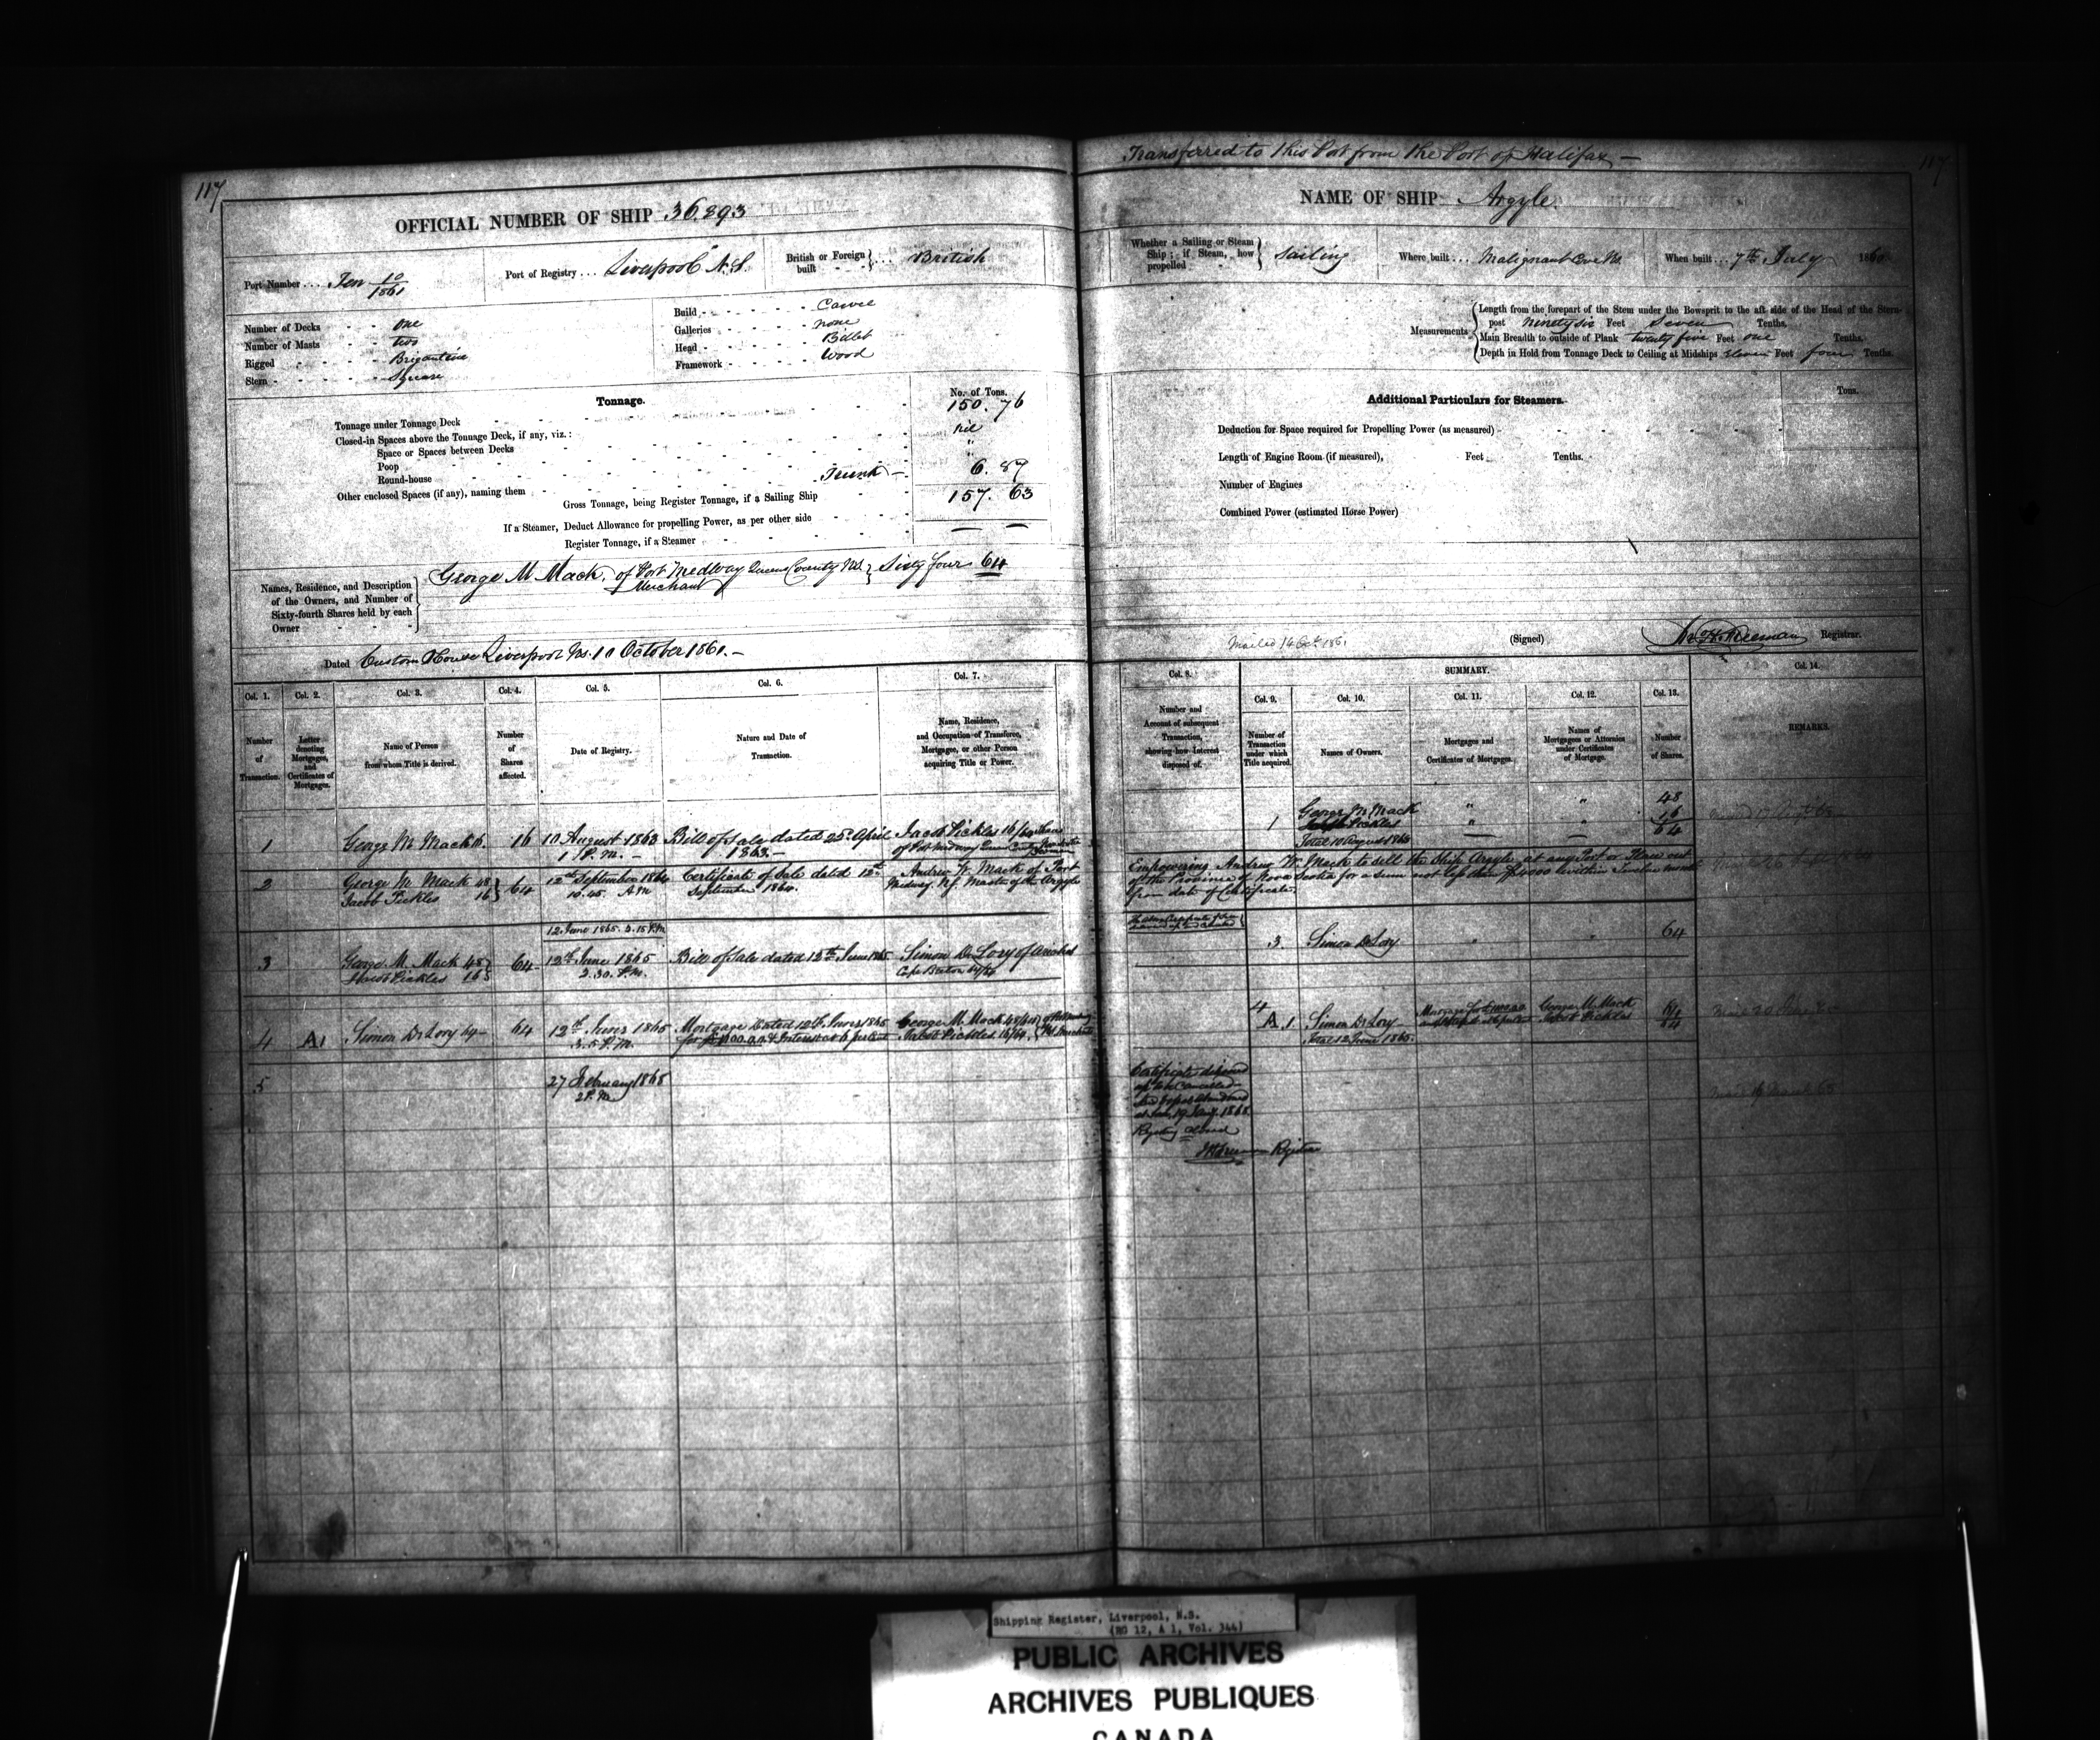 117
OFFICIAL NUMBER OF SHIP 36.893
Port Number ... Ten 10/1861
Port of Registry ... Liverpool N.S.
British or Foreign built } ... British
Number of Decks - - one
Number of Masts - - two
Rigged - - - Brigantine
Stern - - - - Square
Build - - - - - - Carvel
Galleries - - - - - none
Head - - - - - - Billet
Framework - - - - Wood
Tonnage.
No. of Tons.
Tonnage under Tonnage Deck 150. 76
Closed-in Spaces above the Tonnage Deck, if any, viz.: nil
Space or Spaces between Decks "
Poop
Round-house
Other enclosed Spaces (if any), naming them Trunk — 6. 87
Gross Tonnage, being Register Tonnage, if a Sailing Ship 157. 63
If a Steamer, Deduct Allowance for propelling Power, as per other side
Register Tonnage, if a Steamer
Names, Residence, and Description of the Owners, and Number of Sixty-fourth Shares held by each Owner
George M Mack, of Port Medway Queens County NS } Sixty four 64
Merchant
Dated Custom House Liverpool Ns. 10 October 1861.—
Col. 1. Col. 2. Col. 3. Col. 4. Col. 5. Col. 6. Col. 7.
Number of Transaction.
Letter denoting Mortgages, and Certificates of Mortgages.
Name of Person from whom Title is derived.
Number of Shares affected.
Date of Registry.
Nature and Date of Transaction.
Name, Residence, and Occupation of Transferee, Mortgagee, or other Person acquiring Title or Power.
1 George M Mack 16 10 August 1863 Bill of Sale dated 25th April Jacob Pickles 16/64 Shares
1 P.M. — 1863.— of Port Medway Queens County
2 George M. Mack 48 } 64 12th September 1864 Certificate of Sale dated 12th Andrew W. Mack of Port
Jacob Pickles 16 10.45. A.M September 1864. Medway, NS. Master of the Argyle
12 June 1865. 2.15 P.M
3 George M. Mack 48 } 64 12th June 1865 Bill of Sale dated 12th June 1865 Simon DeLory of Arichat
Jacob Pickles 16 2.30. P.M. Cape Breton 64/64
4 A.1 Simon DeLory 64 64 12th June 1865 Mortgage Dated 12th June 1865 George M. Mack 48/64
3.5 P.M. Interest at 6 per cent Jacob Pickles 16/64
5 27 February 1868
2 P.M
Transferred to this Port from the Port of Halifax —
117
NAME OF SHIP Argyle.
Whether a Sailing or Steam Ship; if Steam, how propelled } Sailing
Where built ... Malignant Cove Ns.
When built ... 7th July 1860
Measurements
Length from the forepart of the Stem under the Bowsprit to the aft side of the Head of the Stern-
post Ninety six Feet Seven Tenths.
Main Breadth to outside of Plank twenty five Feet one Tenths.
Depth in Hold from Tonnage Deck to Ceiling at Midships eleven Feet four Tenths.
Additional Particulars for Steamers.
Tons.
Deduction for Space required for Propelling Power (as measured)
Length of Engine Room (if measured), Feet Tenths.
Number of Engines
Combined Power (estimated Horse Power)
Mailed 14 Oct. 1861
(Signed) Freeman Registrar.
Col. 8. SUMMARY. Col. 14.
Col. 9. Col. 10. Col. 11. Col. 12. Col. 13.
Number and Account of subsequent Transaction, showing how Interest disposed of.
Number of Transaction under which Title acquired.
Names of Owners.
Mortgages and Certificates of Mortgages.
Names of Mortgagees or Attornies under Certificates of Mortgage.
Number of Shares.
REMARKS.
George M Mack " " 48
1 Jacob Pickles " " 16
Total 10 August 1863 64
Empowering Andrew W. Mack to sell the Ship Argyle, at any Port or Place out
of the Province of Nova Scotia for a sum not less than $4000 within Twelve months
from date of Certificate.
3. Simon DeLory " " 64
4 A.1 Simon DeLory George M. Mack
Jacob Pickles 64
Total 12 June 1865.
Certificate
Registry closed
Freeman Registrar
Shipping Register, Liverpool, N.S.
(RG 12, A 1, Vol. 344)
PUBLIC ARCHIVES
ARCHIVES PUBLIQUES
CANADA